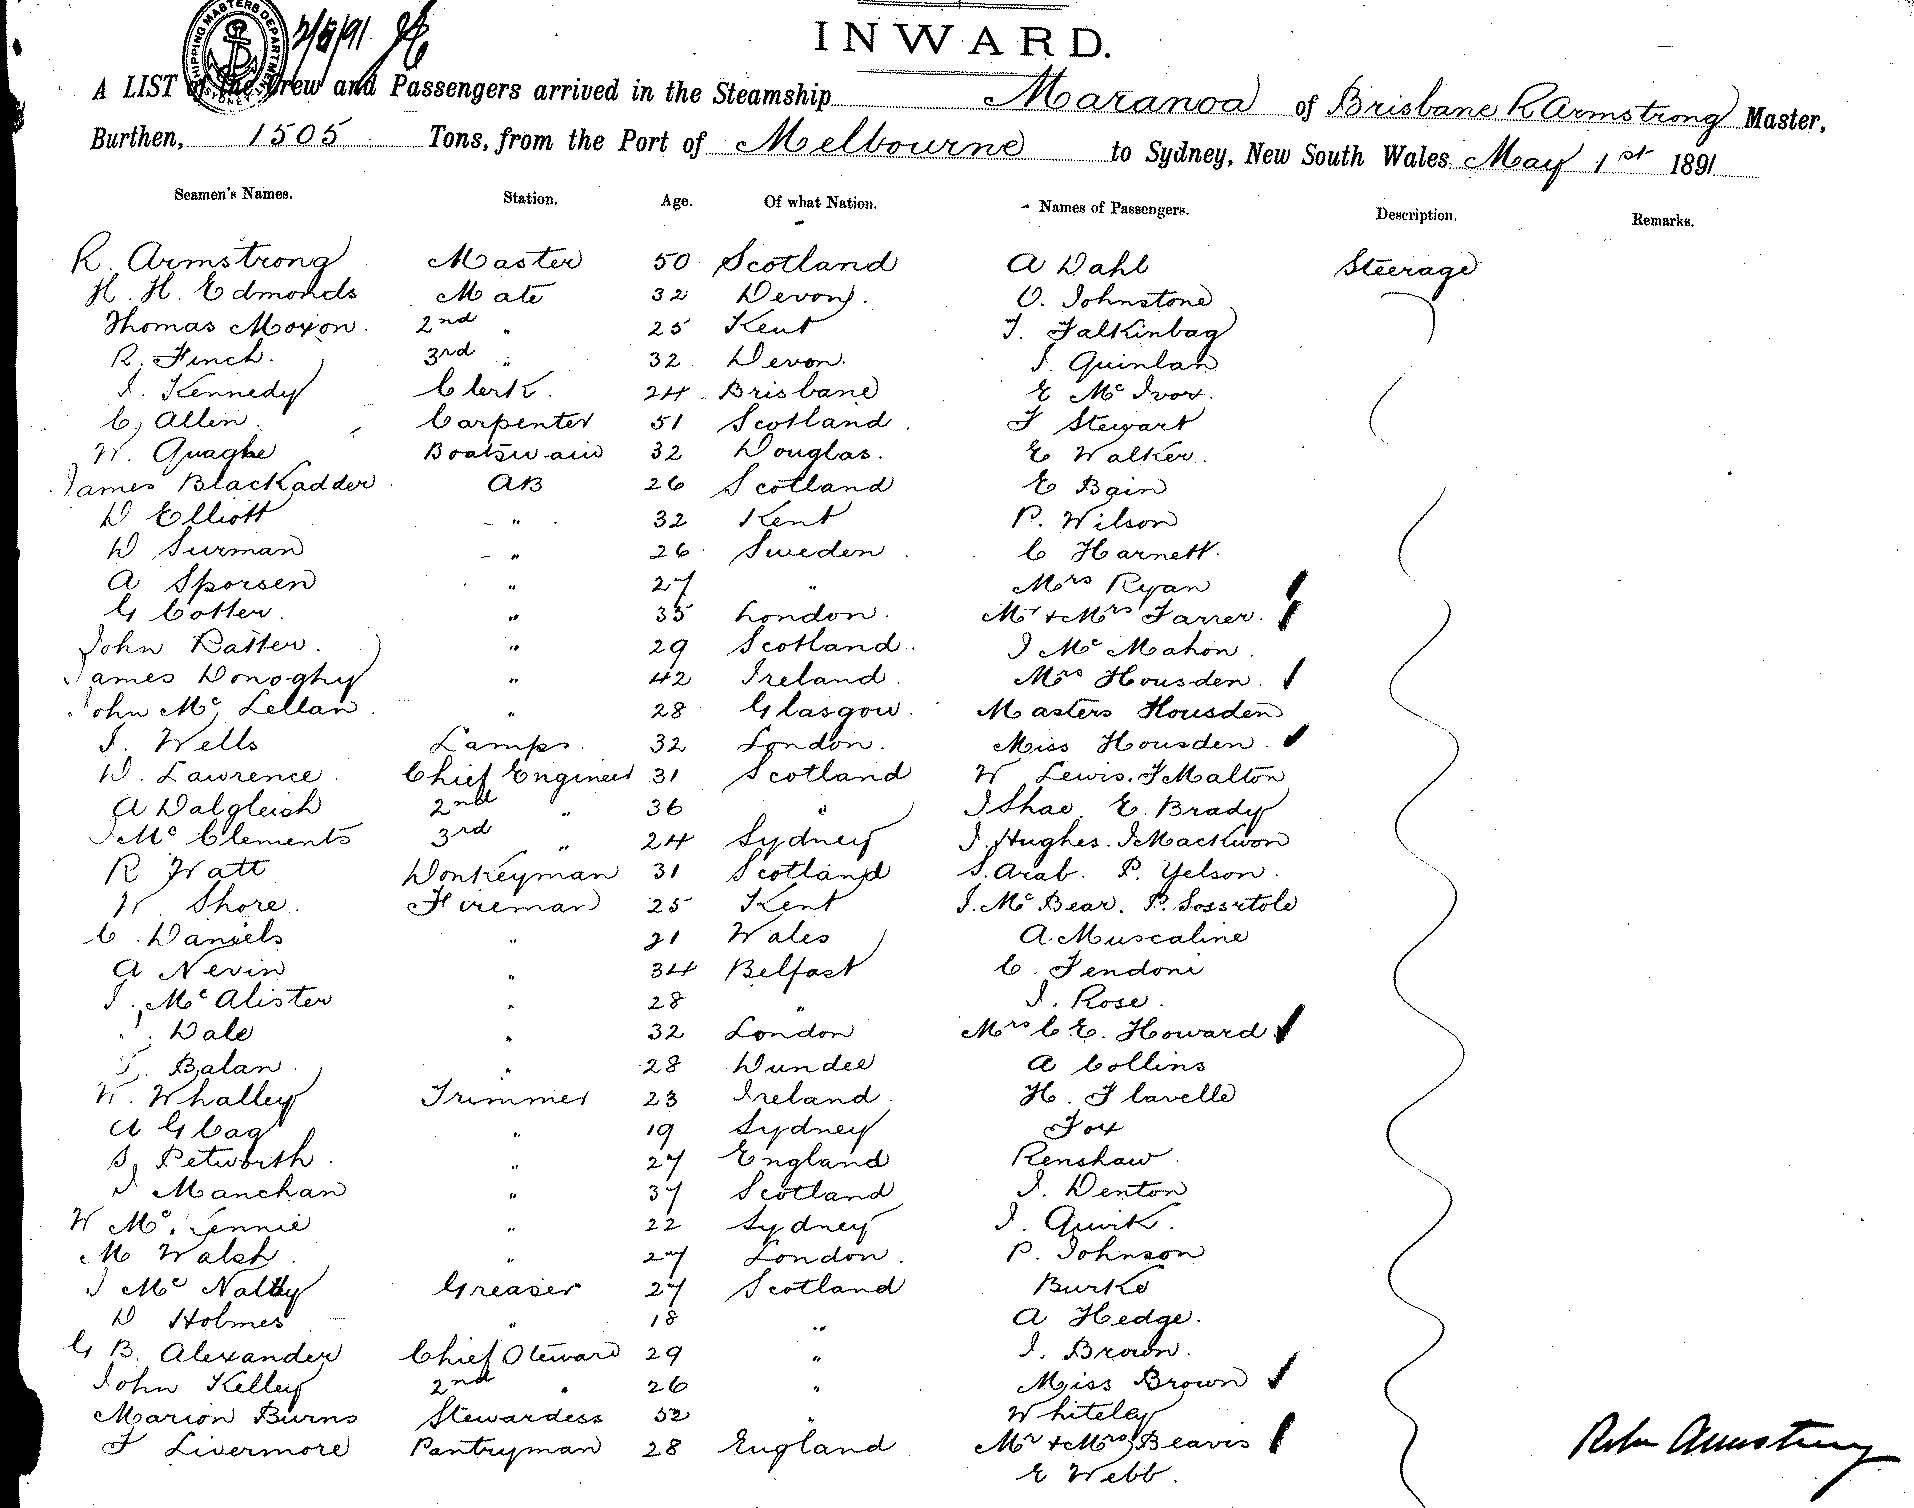 SHIPPING MASTERS DEPARTMENT SYDNEY
2/5/91
INWARD.
A LIST of the Crew and Passengers arrived in the Steamship Maranoa of Brisbane R Armstrong Master,
Burthen, 1505 Tons, from the Port of Melbourne to Sydney, New South Wales May 1st 1891
Seamen's Names. Station. Age. Of what Nation. Names of Passengers. Description. Remarks.
R. Armstrong Master 50 Scotland A Dahl Steerage
H. H. Edmonds Mate 32 Devon. O. Johnstone
Thomas Moxon. 2nd " 25 Kent T. Falkinbag
R. Finch. 3rd " 32 Devon. J. Quinlan
J. Kennedy Clerk. 24 Brisbane E Mc Ivor.
C, Allen. Carpenter 51 Scotland F Stewart
W. Quagke Boatswain 32 Douglas. E Walker.
James Blackadder AB 26 Scotland E Bain
D Elliott " 32 Kent P. Wilson
D Surman " 26 Sweden C Harnett.
A Sporsen " 27 " Mrs Ryan
G Cotter. " 35 London. Mr & Mrs Farrer.
John Batter. " 29 Scotland. J Mc Mahon.
James Donoghy " 42 Ireland. Mrs Housden.
John Mc Lellan " 28 Glasgow. Masters Housden
J. Wells Lamps. 32 London. Miss Housden.
D. Lawrence Chief Engineer 31 Scotland W Lewis. J Malton
A Dalgleish 2nd " 36 " J Shae E. Brady
J Mc Clements 3rd " 24 Sydney J. Hughes. J Mackwon
R Watt Donkeyman 31 Scotland S. Arab. P. Yelson.
W. Shore. Fireman 25 Kent J. Mc Bear. P. Sossitole
C. Daniels " 21 Wales A Muscaline
A Nevin " 34 Belfast C. Fendoni
J. Mc Alister " 28 " J. Rose.
Dale " 32 London Mrs C E. Howard
T. Balan " 28 Dundee A Collins
W. Whalley Trimmer 23 Ireland. H. Flavelle
A G Cag " 19 Sydney Fox
S, Petworth. " 27 England Renshaw.
J Manchan " 37 Scotland J. Denton
W Mc. Lennie " 22 Sydney J. Quirk.
M Walsh " 27 London. P. Johnson
J Mc Nally Greaser 27 Scotland Burke
D Holmes " 18 " A Hedge.
G B. Alexander Chief Steward 29 " J. Brown.
John Kelley 2nd " 26 " Miss Brown
Marion Burns Stewardess 52 " Whiteley
F Livermore Pantryman 28 England Mr & Mrs Beavis
Robr Armstrong
E Webb.